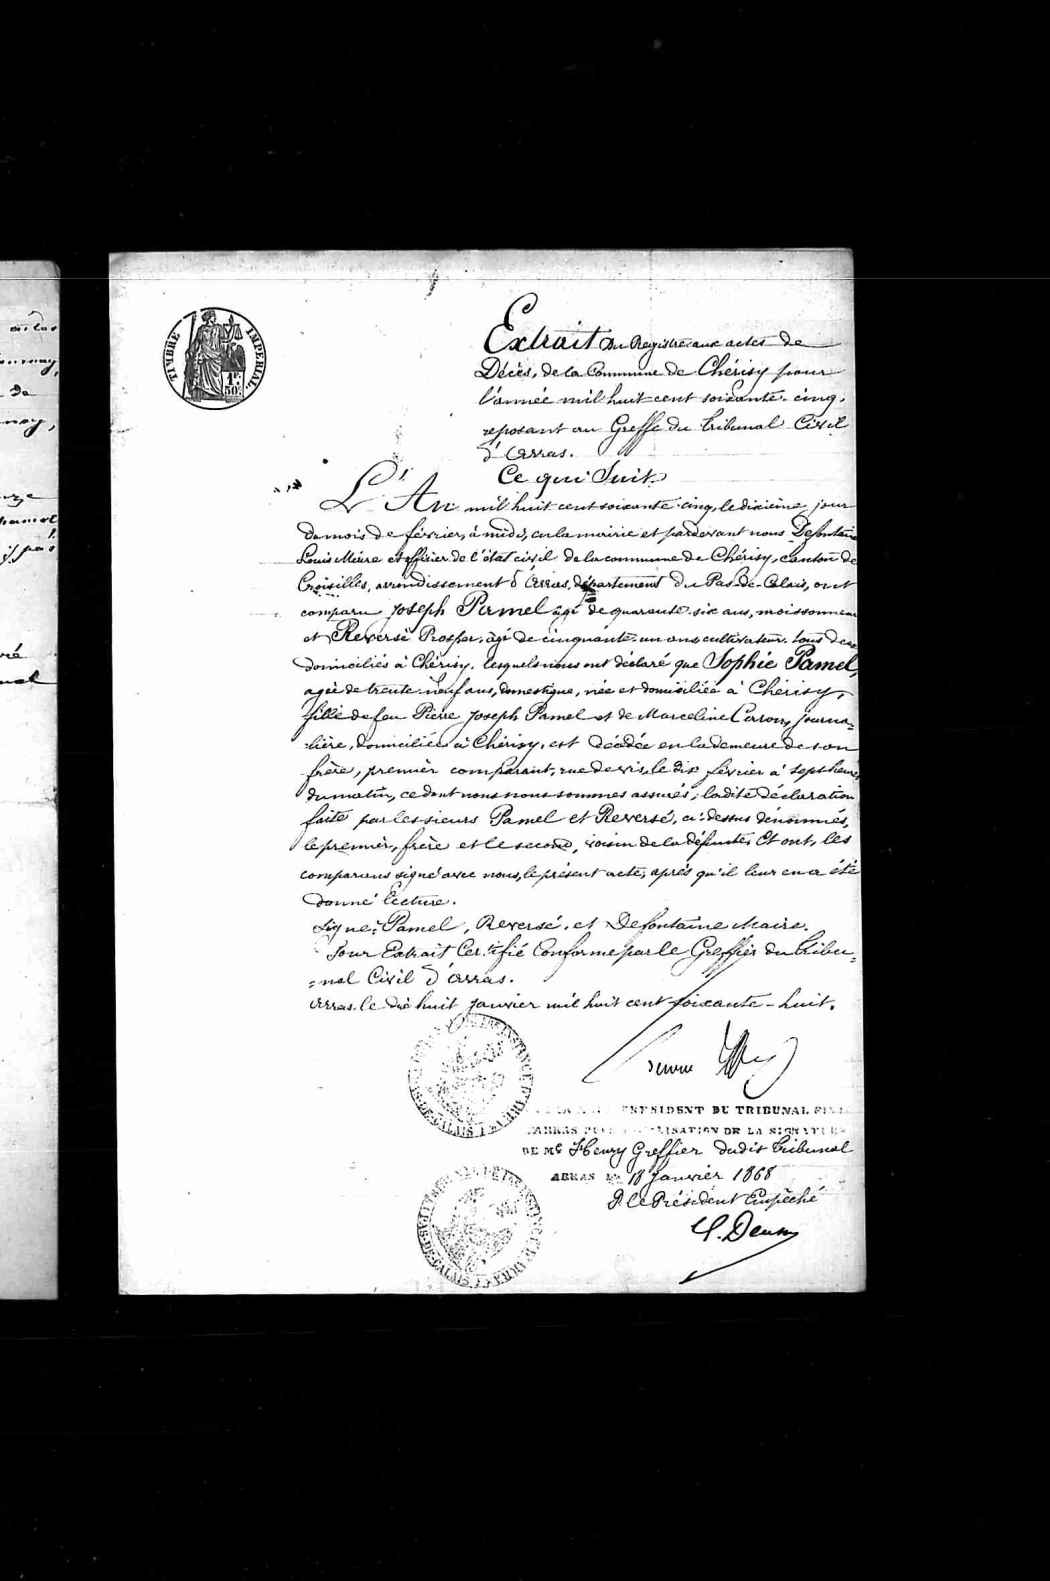 TIMBRE IMPERIAL
1F.
50C.
Extrait du Registre aux actes de
Décès, de la Commune de Chérisy pour
l'année mil huit cent soixante-cinq,
reposant au Greffe du Tribunal Civil
d'Arras.
Ce qui Suit
L'An mil huit cent soixante cinq, le dixième jour
du mois de février, à midi, en la mairie et pardevant nous Defontaine
Louis Maire et officier de l'état civil de la commune de Chérisy, canton de
Croisilles, arrondissement d'Arras, département du Pas-de-Calais, ont
comparu Joseph Pamel agé de quarante-six ans, moissonneur
et Reversé Prosper, agé de cinquante-un ans cultivateur, tous deux
domiciliés à Chérisy, lesquels nous ont déclaré que Sophie Pamel,
agée de trente-neuf ans, domestique, née et domiciliée à Chérisy,
fille de feu Pierre Joseph Pamel et de Marceline Carron, journa-
-lière, domiciliée à Chérisy, est décédée en la demeure de son
frère, premier comparant, rue de vis, le dix février à sept heures
du matin, ce dont nous nous sommes assurés; ladite déclaration
faite par les sieurs Pamel et Reversé, ci-dessus dénommés,
le premier, frère et le second, voisin de la défunte. Et ont, les
comparans signé avec nous, le présent acte, après qu'il leur en a été
donné lecture.
Signé: Pamel, Reversé, et Defontaine Maire.
Pour Extrait Certifié Conforme par le Greffier du Tribu-
-nal Civil d'Arras.
Arras, le dix huit Janvier mil huit cent soixante-huit.
PRESIDENT DU TRIBUNAL CIVIL
D'ARRAS POUR LEGALISATION DE LA SIGNATURE
DE Me Henry Greffier dudit Tribunal
ARRAS LE 18 Janvier 1868
P. le Président Empêché